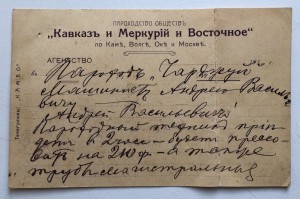 ПАРОХОДСТВО ОБЩЕСТВЪ
„Кавказъ и Меркурій и Восточное"
по Камѣ, Волгѣ, Окѣ и Москвѣ.
АГЕНТСТВО
въ
Пароходъ „Чарджуй"
Машинисту Андрею Василье
вичу
Андрей Васильевичъ
Пароходный техникъ прі
детъ в 2 часа – будетъ прессо
вать на 210 ф. – а также
трубы магистральныя